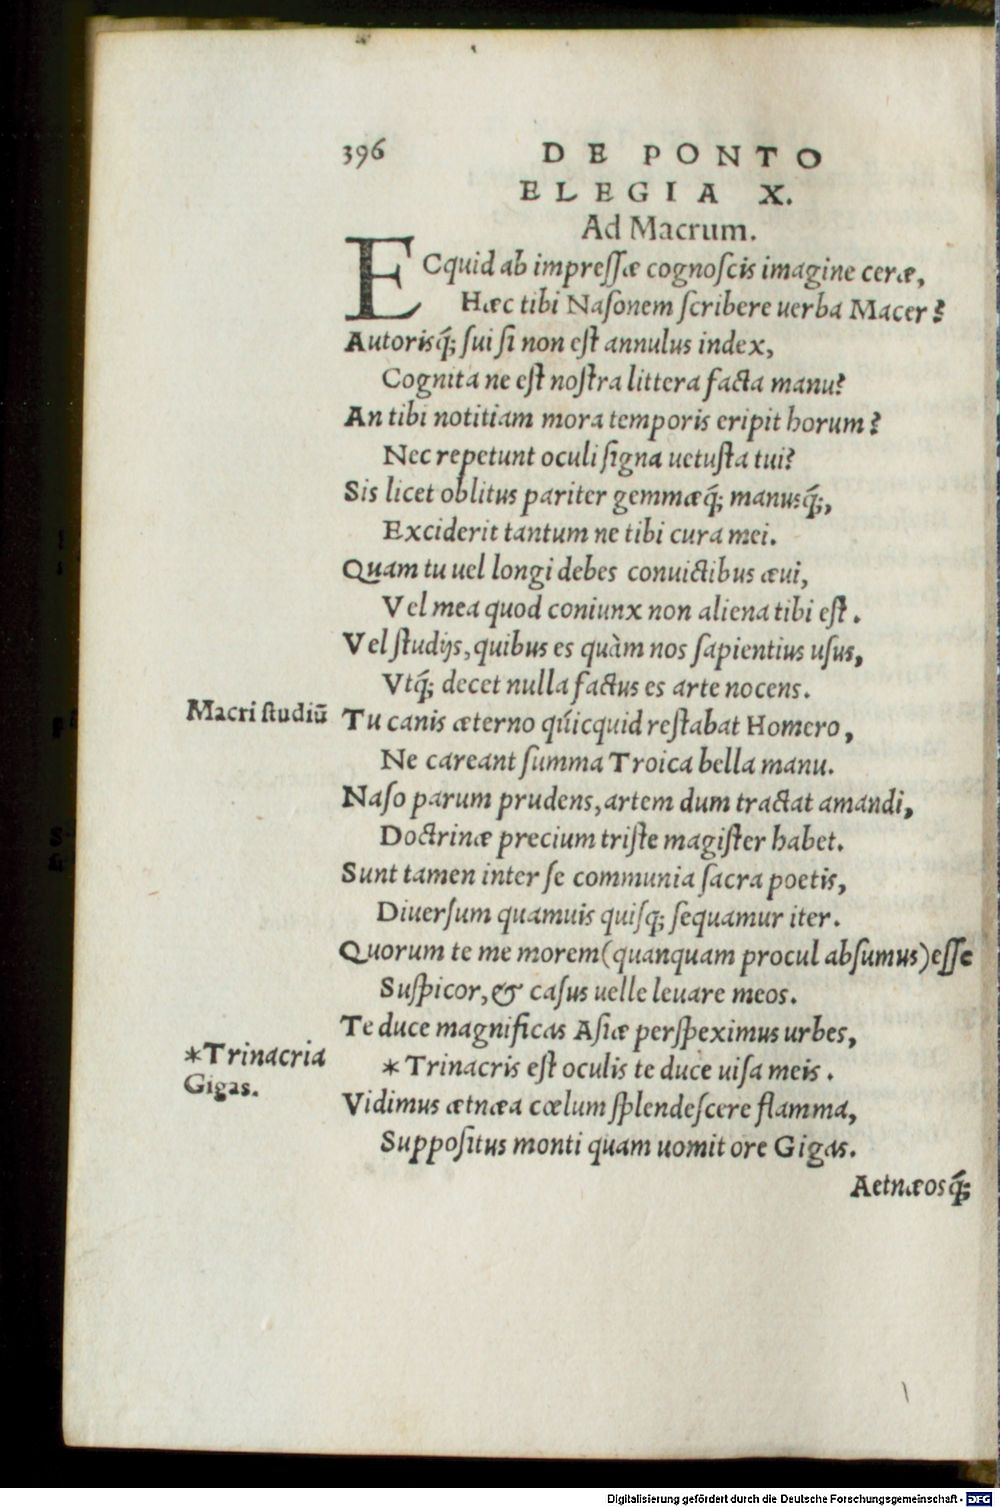 396 DE PONTO
ELEGIA X.
Ad Macrum.
ECquid ab impreſſæ cognoſcis imagine ceræ,
Hæc tibi Naſonem ſcribere uerba Macer?
Autorisq́; ſui ſi non eſt annulus index,
Cognita ne eſt noſtra littera facta manu?
An tibi notitiam mora temporis eripit horum?
Nec repetunt oculi ſigna uetuſta tui?
Sis licet oblitus pariter gemmæq́; manusq́;,
Exciderit tantum ne tibi cura mei.
Quam tu uel longi debes conuictibus æui,
Vel mea quod coniunx non aliena tibi eſt.
Vel ſtudijs, quibus es quàm nos ſapientius uſus,
Vtq́; decet nulla factus es arte nocens.
Macri ſtudiũ
Tu canis æterno quicquid reſtabat Homero,
Ne careant ſumma Troica bella manu.
Naſo parum prudens, artem dum tractat amandi,
Doctrinæ precium triſte magiſter habet.
Sunt tamen inter ſe communia ſacra poetis,
Diuerſum quamuis quiſq; ſequamur iter.
Quorum te me morem (quanquam procul abſumus) eſſe
Suſpicor, & caſus uelle leuare meos.
Te duce magnificas Aſiæ perſpeximus urbes,
*Trinacria
Gigas.
*Trinacris eſt oculis te duce uiſa meis.
Vidimus ætnæa cœlum ſplendeſcere flamma,
Suppoſitus monti quam uomit ore Gigas.
Aetnæosq́;
Digitalisierung gefördert durch die Deutsche Forschungsgemeinschaft - DFG